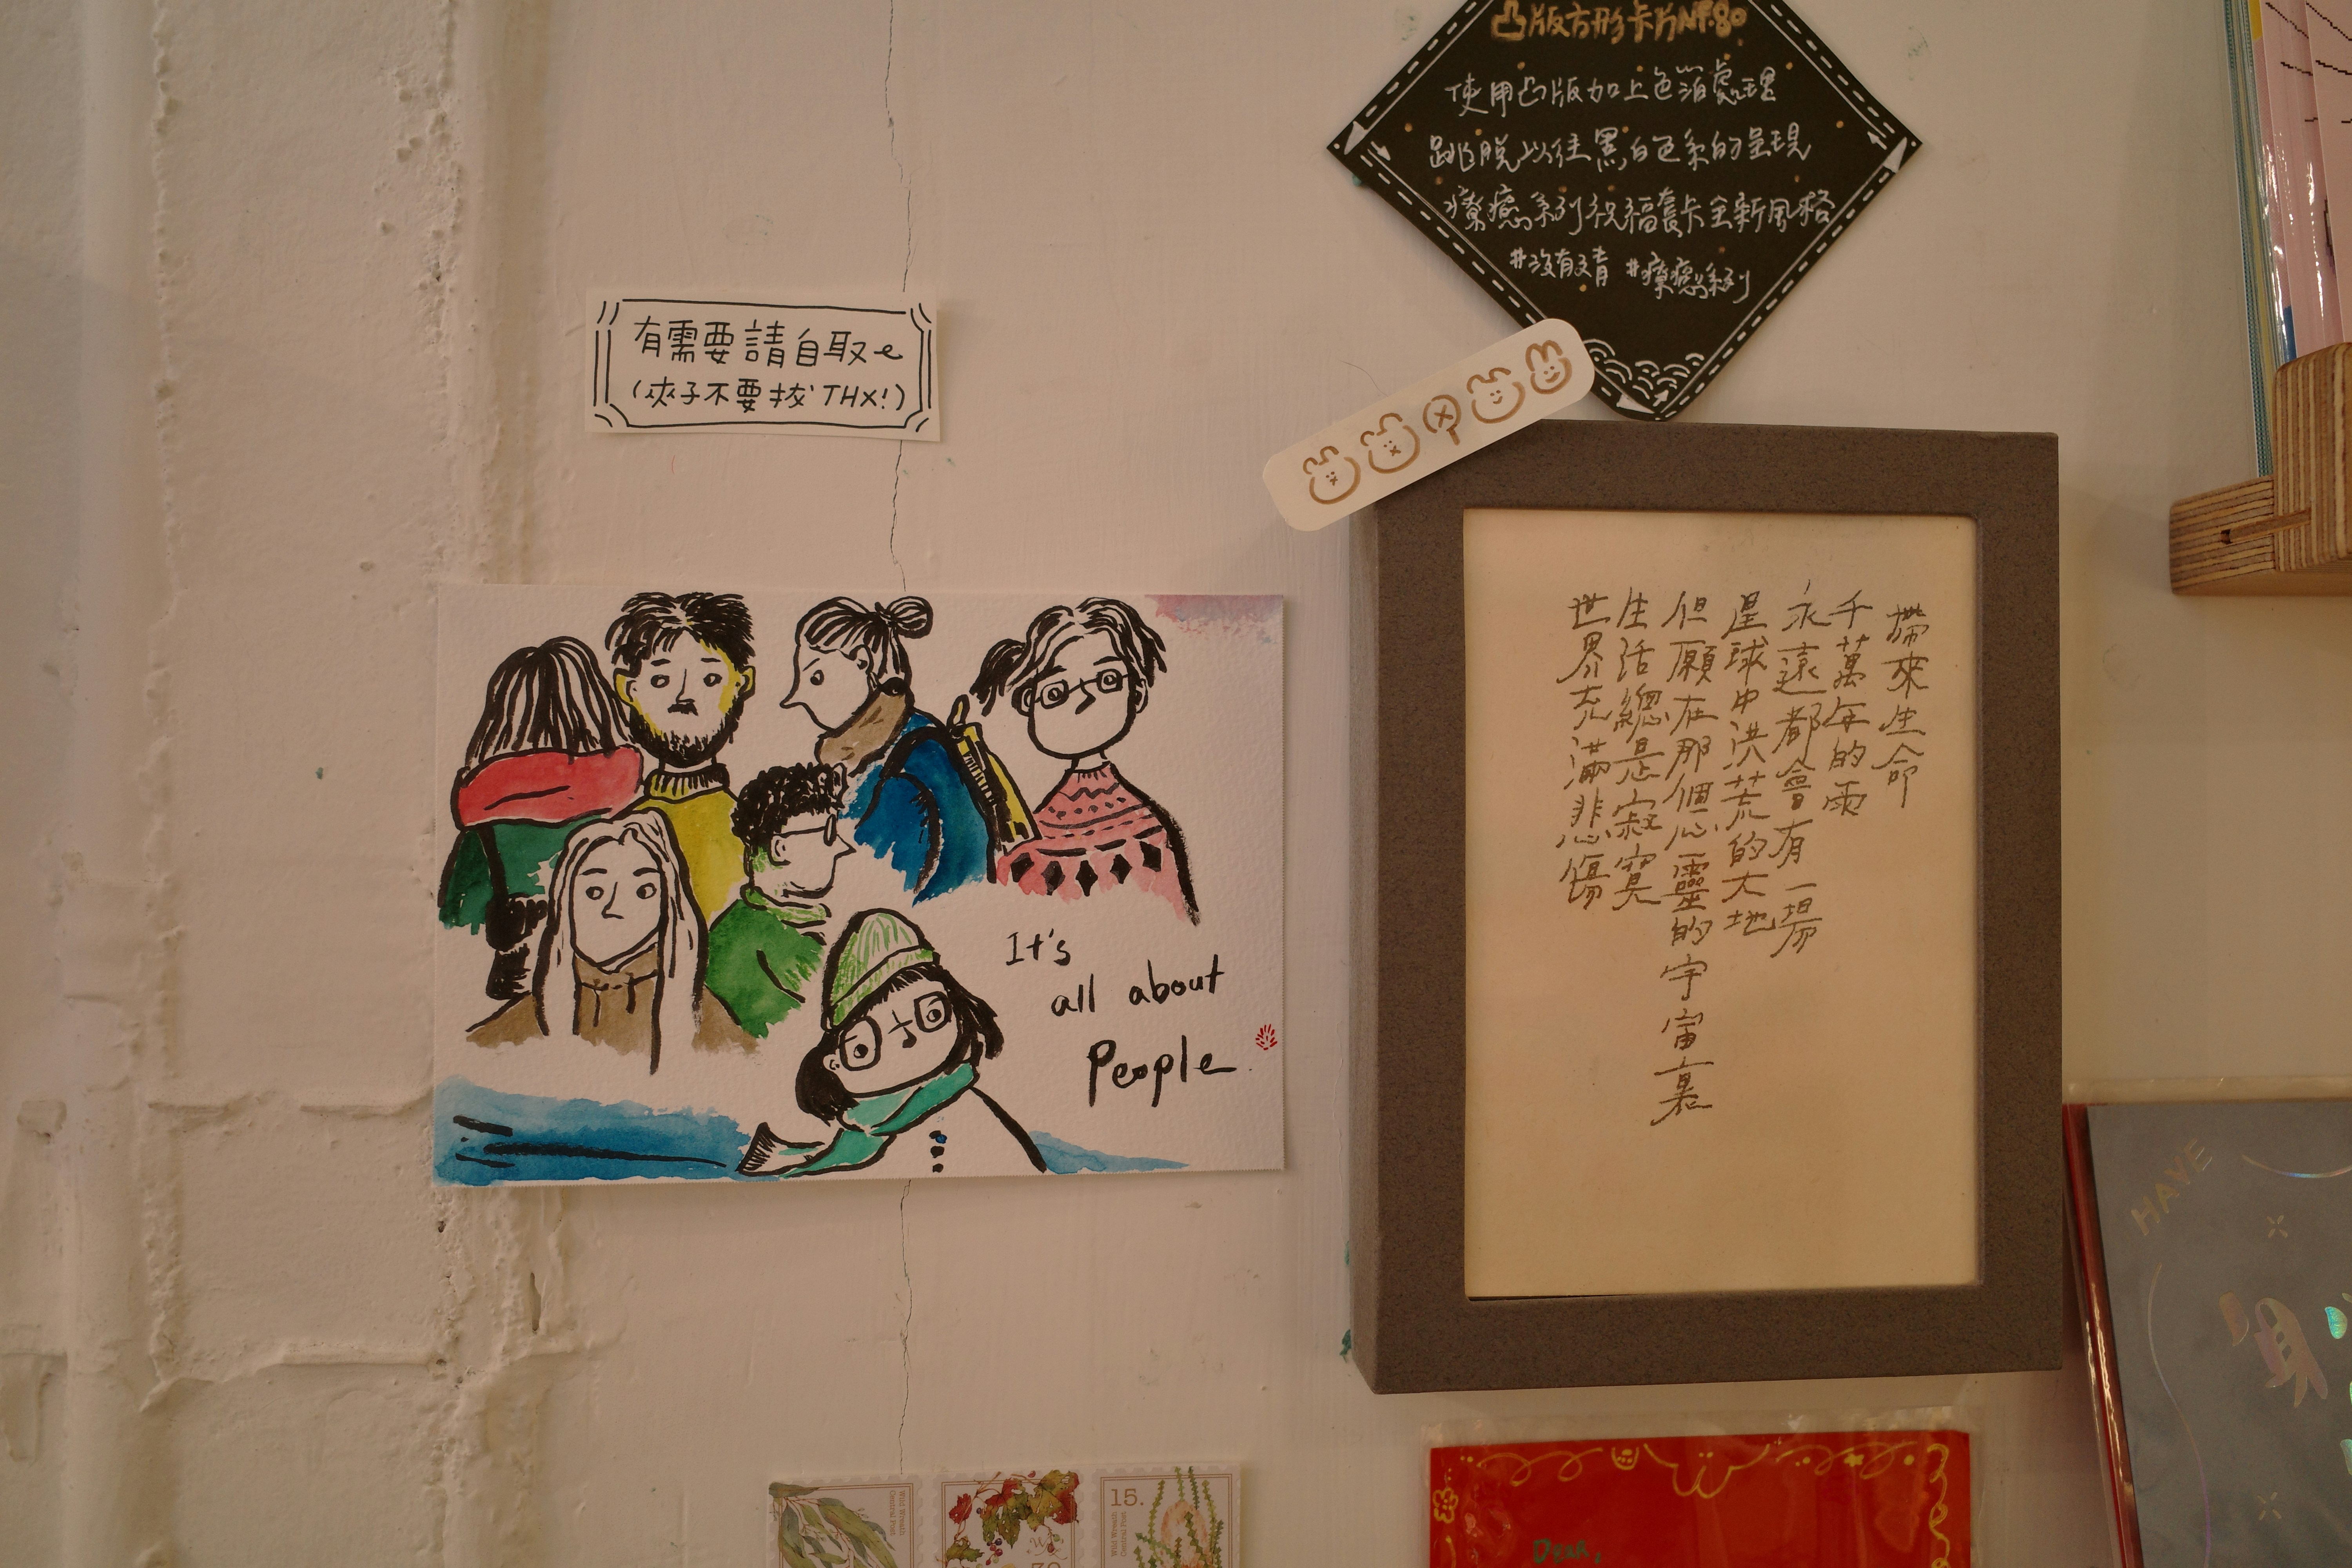 凸版方形卡片NT.80
使用凸版加上色箔處理
跳脫以往黑白色系的呈現
療癒系列祝福套卡全新風格
#沒有文青 #療癒系列
有需要請自取
(夾子不要拔 THX!)
It's
all about
People.
世界充滿悲傷
生活總是寂寞
但願在那個心靈的宇宙裏
星球中洪荒的大地
永遠都會有一場
千萬年的雨
帶來生命
HAVE
Wild Wreath
Central Post
15.
Wild Wreath
Central Post
Dear,